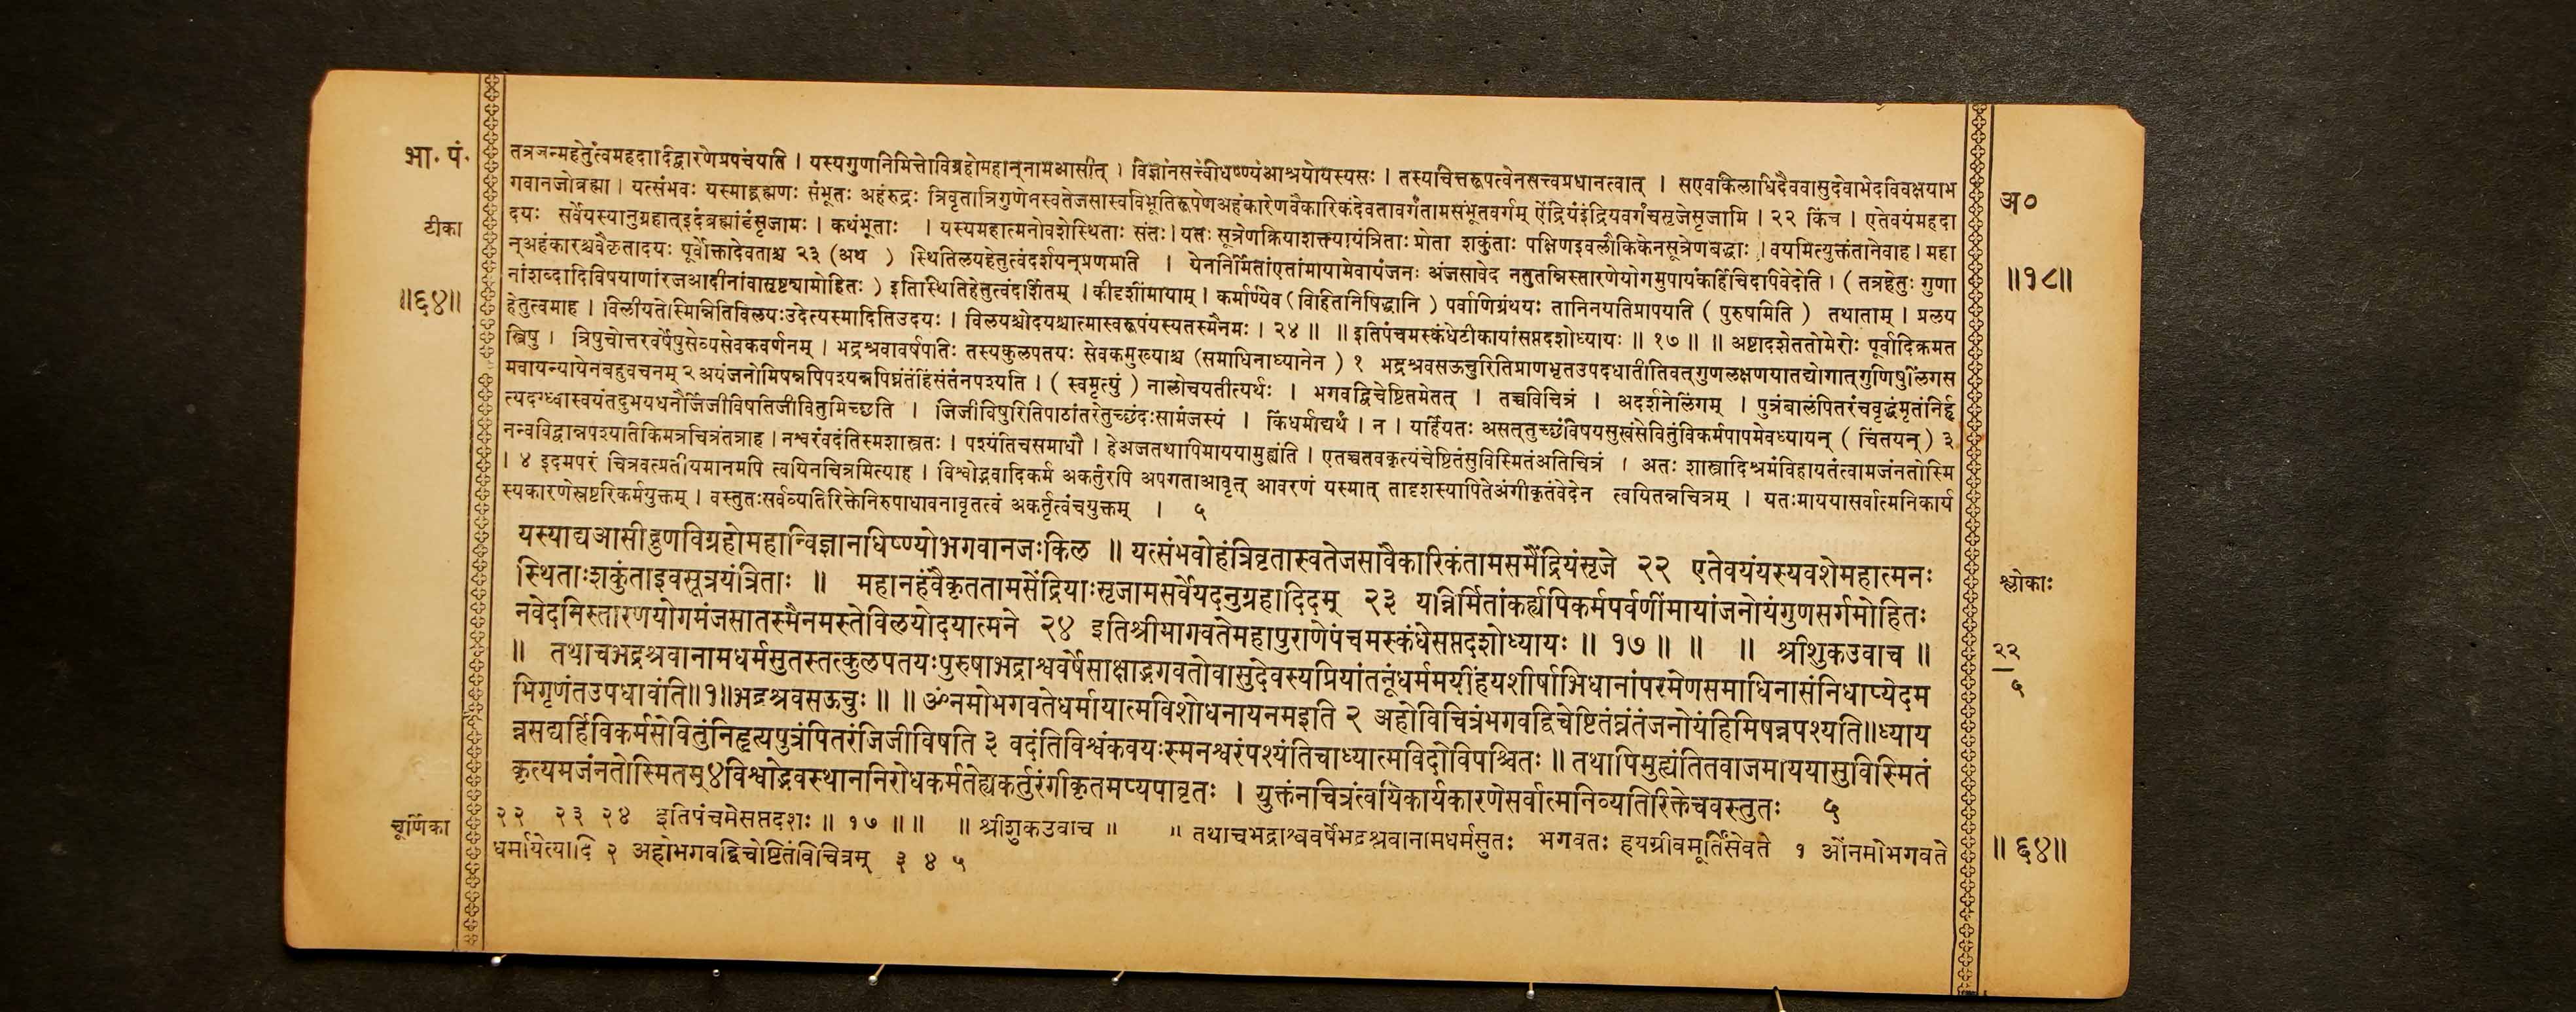 भा. पं.
तत्रजन्महेतुत्वमहदादिद्वारणेप्रपंचयति । यस्यगुणनिमित्तोविग्रहोमहान्नामआसीत् । विज्ञानंसत्त्वंधिष्ण्यंआश्रयोयस्यसः । तस्यचित्तरूपत्वेनसत्त्वप्रधानत्वात् । सएवकिलाधिदैववासुदेवाभेदविवक्षयाभ
गवानजोब्रह्मा । यत्संभवः यस्माद्ब्रह्मणः संभूतः अहंरुद्रः त्रिवृतात्रिगुणेनस्वतेजसास्वविभूतिरूपेणअहंकारेणवैकारिकंदेवतावर्गंतामसंभूतवर्गम् ऐंद्रियंइंद्रियवर्गंचसृजेसृजामि । २२ किंच । एतेवयंमहदा
अ०
टीका
दयः सर्वेयस्यानुग्रहात्इदंब्रह्मांडंसृजामः । कथंभूताः । यस्यमहात्मनोवशेस्थिताः संतः । यतः सूत्रेणक्रियाशक्त्यायंत्रिताः प्रोता शकुंताः पक्षिणइवलौकिकेनसूत्रेणबद्धाः । वयमित्युक्तंतानेवाह । महा
न्अहंकारश्चवैकृतादयः पूर्वोक्तादेवताश्च २३ (अथ ) स्थितिलयहेतुत्वंदर्शयन्प्रणमति । येननिर्मितांएतांमायामेवायंजनः अंजसावेद नतुतन्निस्तारणेयोगमुपायंकर्हिचिदपिवेदेति । ( तत्रहेतुः गुणा
॥१८॥
॥६४॥
नांशब्दादिविषयाणांरजआदीनांवासृष्ट्यामोहितः ) इतिस्थितिहेतुत्वंदर्शितम् । कीदृशींमायाम् । कर्माण्येव (विहितनिषिद्धानि ) पर्वाणिग्रंथयः तानिनयतिप्रापयति ( पुरुषमिति ) तथाताम् । प्रलय
हेतुत्वमाह । विलीयतेस्मिन्नितिविलयःउदेत्यस्मादितिउदयः । विलयश्चोदयश्चात्मास्वरूपंयस्यतस्मैनमः । २४ ॥ ॥ इतिपंचमस्कंधेटीकायांसप्तदशोध्यायः ॥ १७ ॥ ॥ अष्टादशेततोमेरोः पूर्वादिक्रमत
स्त्रिषु । त्रिषुचोत्तरवर्षेषुसेव्यसेवकवर्णनम् । भद्रश्रवावर्षपतिः तस्यकुलपतयः सेवकमुख्याश्च (समाधिनाध्यानेन ) १ भद्रश्रवसऊचुरितिप्राणभृतउपदधातीतिवत्गुणलक्षणयातद्योगात्गुणिषुलिंगस
मवायन्यायेनबहुवचनम् २ अयंजनोमिषन्नपिपश्यन्नपिघ्नंतंहिंसंतंनपश्यति । ( स्वमृत्युं ) नालोचयतीत्यर्थः । भगवद्विचेष्टितमेतत् । तच्चविचित्रं । अदर्शनेलिंगम् । पुत्रंबालंपितरंचवृद्धंमृतंनिर्हृ
त्यदग्ध्वास्वयंतदुभयधनैर्जिजीविषतिजीवितुमिच्छति । जिजीविषुरितिपाठांतरेतुच्छंदःसामंजस्यं । किंधर्माद्यर्थं । न । यर्हियतः असत्तुच्छंविषयसुखंसेवितुंविकर्मपापमेवध्यायन् ( चिंतयन् ) ३
नन्वविद्वान्नपश्यतिकिमत्रचित्रंतत्राह । नश्वरंवदंतिस्मशास्त्रतः । पश्यंतिचसमाधौ । हेअजतथापिमाययामुह्यंति । एतच्चतवकृत्यंचेष्टितंसुविस्मितंअतिचित्रं । अतः शास्त्रादिश्रमंविहायतंत्वामजंनतोस्मि
। ४ इदमपरं चित्रवत्प्रतीयमानमपि त्वयिनचित्रमित्याह । विश्वोद्भवादिकर्म अकर्तुरपि अपगताआवृत् आवरणं यस्मात् तादृशस्यापितेअंगीकृतंवेदेन त्वयितन्नचित्रम् । यतःमाययासर्वात्मनिकार्य
स्यकारणेस्रष्टरिकर्मयुक्तम् । वस्तुतःसर्वव्यतिरिक्तेनिरुपाधावनावृतत्वं अकर्तृत्वंचयुक्तम् । ५
यस्याद्यआसीद्गुणविग्रहोमहान्विज्ञानधिष्ण्योभगवानजःकिल ॥ यत्संभवोहंत्रिवृतास्वतेजसावैकारिकंतामसमैंद्रियंसृजे २२ एतेवयंयस्यवशेमहात्मनः
स्थिताःशकुंताइवसूत्रयंत्रिताः ॥ महानहंवैकृततामसेंद्रियाःसृजामसर्वेयदनुग्रहादिदम् २३ यन्निर्मितांकर्ह्यपिकर्मपर्वणींमायांजनोयंगुणसर्गमोहितः
श्लोकाः
नवेदनिस्तारणयोगमंजसातस्मैनमस्तेविलयोदयात्मने २४ इतिश्रीमागवतेमहापुराणेपंचमस्कंधेसप्तदशोध्यायः ॥ १७ ॥ ॥ ॥ श्रीशुकउवाच ॥
॥ तथाचभद्रश्रवानामधर्मसुतस्तत्कुलपतयःपुरुषाभद्राश्ववर्षेसाक्षाद्भगवतोवासुदेवस्यप्रियांतनूंधर्ममयींहयशीर्षाभिधानांपरमेणसमाधिनासंनिधाप्येदम
२२
५
भिगृणंतउपधावंति॥१॥भद्रश्रवसऊचुः ॥ ॥ ॐनमोभगवतेधर्मायात्मविशोधनायनमइति २ अहोविचित्रंभगवद्विचेष्टितंघ्नंतंजनोयंहिमिषन्नपश्यति॥ध्याय
न्नसद्यर्हिविकर्मसेवितुंनिर्हृत्यपुत्रंपितरंजिजीविषति ३ वदंतिविश्वंकवयःस्मनश्वरंपश्यंतिचाध्यात्मविदोविपश्चितः ॥ तथापिमुह्यंतितवाजमाययासुविस्मितं
कृत्यमजंनतोस्मितम्४विश्वोद्भवस्थाननिरोधकर्मतेह्यकर्तुरंगीकृतमप्यपावृतः । युक्तंनचित्रंत्वयिकार्यकारणेसर्वात्मनिव्यतिरिक्तेचवस्तुतः ५
चूर्णिका
२२ २३ २४ इतिपंचमेसप्तदशः ॥ १७ ॥ ॥ ॥ श्रीशुकउवाच ॥ ॥ तथाचभद्राश्ववर्षेभद्रश्रवानामधर्मसुतः भगवतः हयग्रीवमूर्तिंसेवते १ ओंनमोभगवते
धर्मायेत्यादि २ अहोभगवद्विचेष्टितंविचित्रम् ३ ४ ५
॥ ६४॥